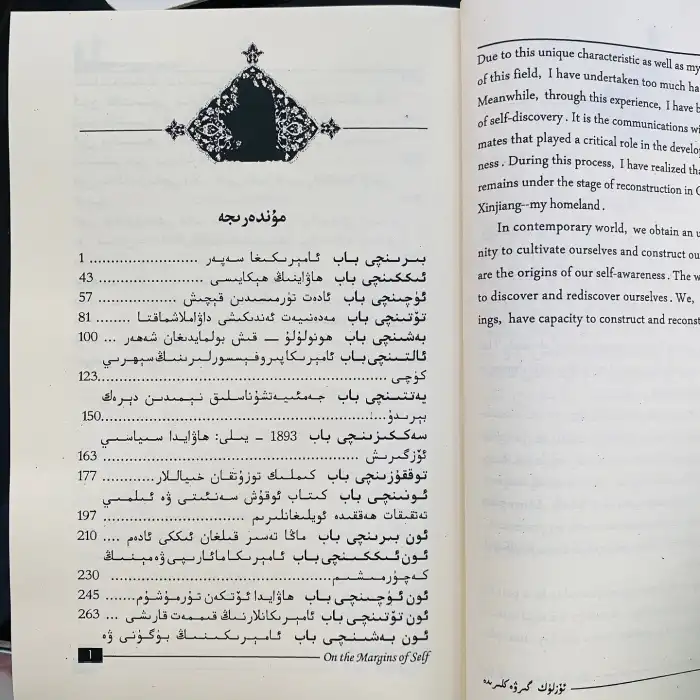 مۇندەرىجە
بىرىنچى باب ئامېرىكىغا سەپەر ........................ 1
ئىككىنچى باب ھاۋاينىڭ ھېكايىسى ........................ 43
ئۈچىنچى باب ئادەت تۈرمىسىدىن قېچىش ................ 57
تۆتىنچى باب مەدەنىيەت ئەندىكىشى داۋاملاشماقتا ........ 81
بەشىنچى باب ھونولۇلۇ — قىش بولمايدىغان شەھەر ... 100
ئالتىنچى باب ئامېرىكا پىروفېسسورلىرىنىڭ سېھرىي
كۈچى ................................................ 123
يەتتىنچى باب جەمئىيەتشۇناسلىق نېمىدىن دېرەك
بېرىدۇ ................................................ 150
سەككىزىنچى باب 1893 - يىلى: ھاۋايدا سىياسىي
ئۆزگىرىش ................................................ 163
توققۇزىنچى باب كىملىك توزۇتقان خىياللار ............ 177
ئونىنچى باب كىتاب ئوقۇش سەنئىتى ۋە ئىلمىي
تەتقىقات ھەققىدە ئويلىغانلىرىم ........................ 197
ئون بىرىنچى باب ماڭا تەسىر قىلغان ئىككى ئادەم .... 210
ئون ئىككىنچى باب ئامېرىكا مائارىپى ۋە مېنىڭ
كەچۈرمىشىم ................................ 230
ئون ئۈچىنچى باب ھاۋايدا ئۆتكەن تۇرمۇشۇم ....... 245
ئون تۆتىنچى باب ئامېرىكانلارنىڭ قىممەت قارىشى ... 263
ئون بەشىنچى باب ئامېرىكىنىڭ بۈگۈنى ۋە
1 On the Margins of Self
Due to this unique characteristic as well as my
of this field, I have undertaken too much ha
Meanwhile, through this experience, I have b
of self-discovery. It is the communications wi
mates that played a critical role in the develo
ness. During this process, I have realized tha
remains under the stage of reconstruction in C
Xinjiang--my homeland.
In contemporary world, we obtain an u
nity to cultivate ourselves and construct ou
are the origins of our self-awareness. The w
to discover and rediscover ourselves. We,
ings, have capacity to construct and reconst
ئۆزلۈك گىرۋەكلىرىدە